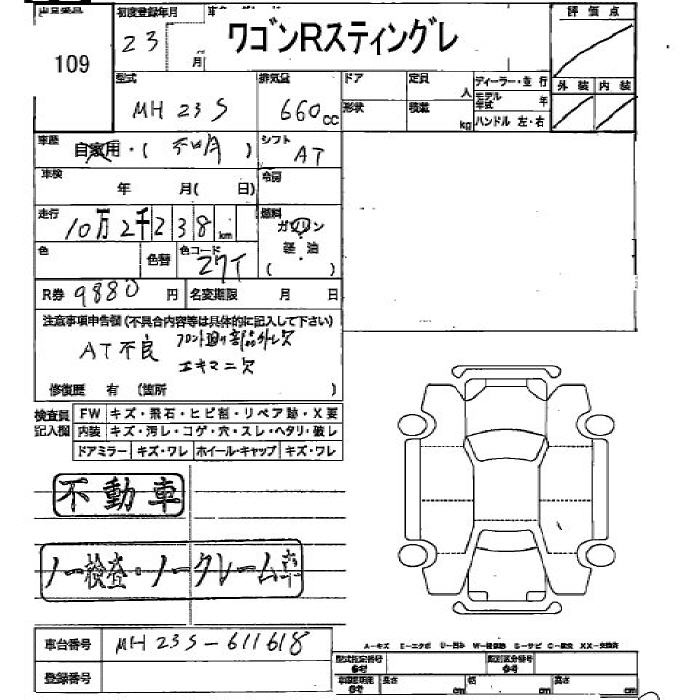 109
初度登録年月
23
月
ワゴンRスティングレ
評価点
型式
MH23S
排気量
660cc
ドア
形状
定員
人
積載
kg
ディーラー・並行
モデル年式
年
ハンドル 左・右
外装
内装
車歴
自家用・( 不明 )
シフト
AT
車検
年 月( 日)
冷房
走行
10万2千238km
燃料
ガソリン
軽油
( )
色
色替
色コード
R券 9880 円
名変期限 月 日
注意事項申告欄(不具合内容等は具体的に記入して下さい)
AT不良
フロント廻り部品外レ欠
エキマニ欠
修復歴 有 (箇所 )
検査員記入欄
FW
キズ・飛石・ヒビ割・リペア跡・X要
内装
キズ・汚レ・コゲ・穴・スレ・ヘタリ・破レ
ドアミラー
キズ・ワレ
ホイール・キャップ
キズ・ワレ
不動車
ノー検査・ノークレーム
車台番号
MH23S-611618
登録番号
A−キズ E−エクボ U−凹み W−補修跡 S−サビ C−腐食 XX−交換済
型式指定番号
参考
類別区分番号
参考
長さ
cm
幅
cm
高さ
cm